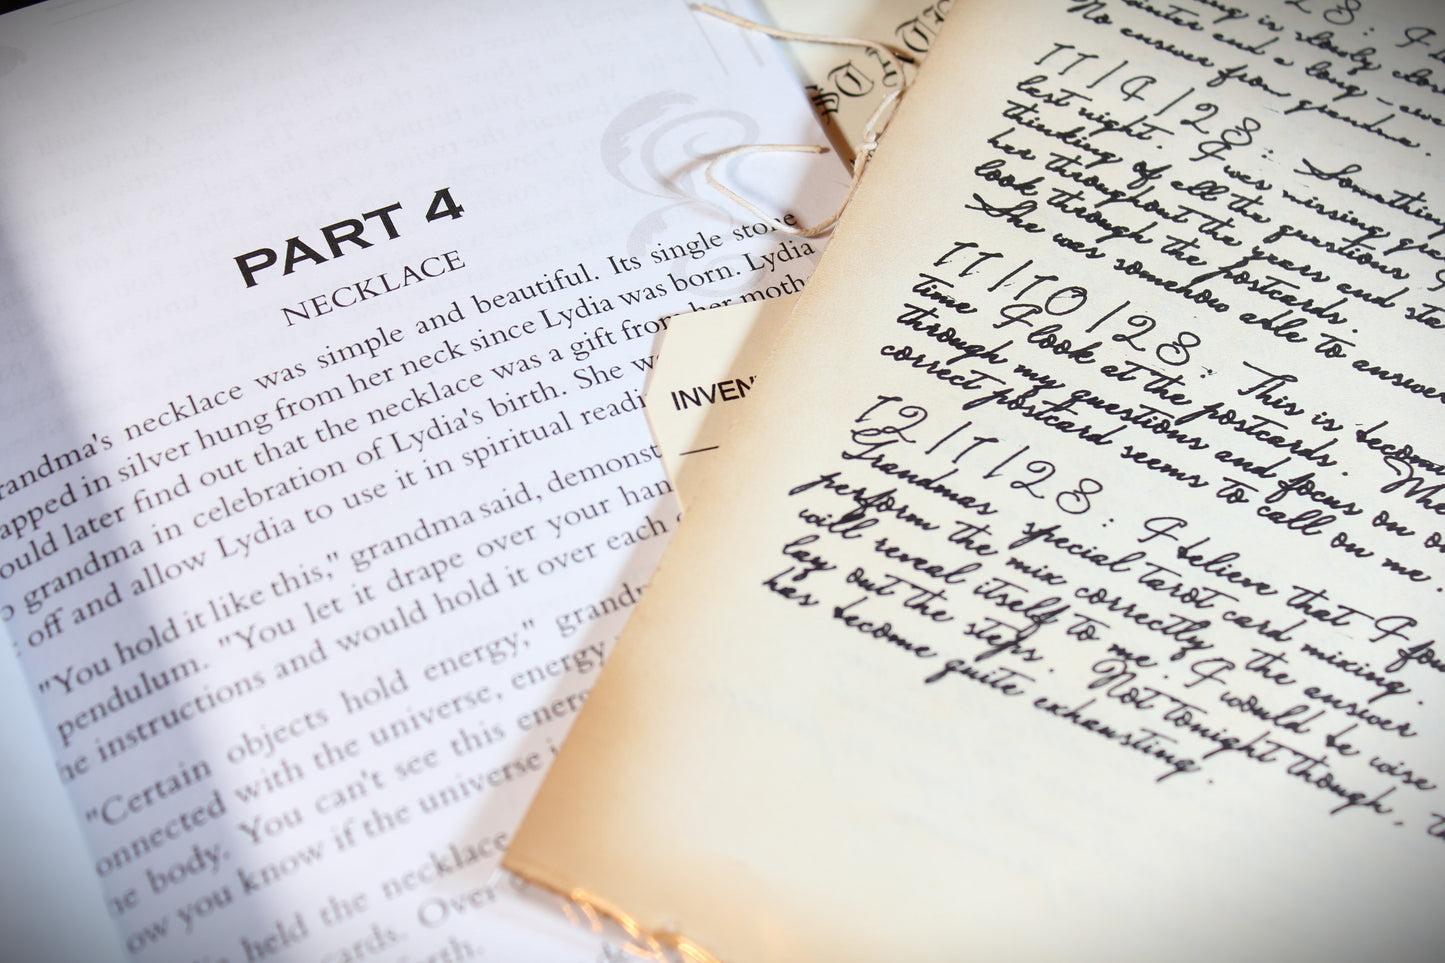 PART 4
NECKLACE
randma's necklace was simple and beautiful. Its single stone
apped in silver hung from her neck since Lydia was born. Lydia
ould later find out that the necklace was a gift from her moth
o grandma in celebration of Lydia's birth. She w
off and allow Lydia to use it in spiritual readi
"You hold it like this," grandma said, demonst
pendulum. "You let it drape over your han
he instructions and would hold it over each
"Certain objects hold energy," grandm
onnected with the universe, energy
he body. You can't see this energ
ow you know if the universe i
held the necklace
cards. Over
INVEN
No answer from grandma.
11/9/23: Something
last night. I was missing
thinking of all the questions
her throughout the years and
look through the postcards.
She was somehow able to answer
11/10/23: This is becomin
time I look at the postcards. Whe
through my questions and focus on
correct postcard seems to call on me.
12/1/23: I believe that I fou
Grandmas special tarot card mixing.
perform the mix correctly, the answer
will reveal itself to me. I would be wise
lay out the steps. Not tonight though,
has become quite exhausting.